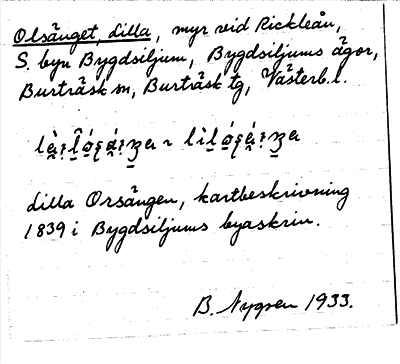 Olsänget, lilla, myr vid Rickleån,
S. byn Bygdsiljum, Bygdsiljums ägor,
Burträsk sn, Burträsk tg, Västerb. l.
lilla Orsängen, kartbeskrivning
1839 i Bygdsiljums byaskrin.
B. Nygren 1933.